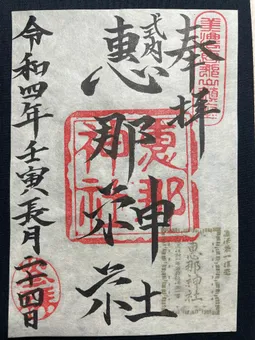 奉拝
式内
惠那神社
令和四年壬寅長月二十四日
惠那神社
恵那神社